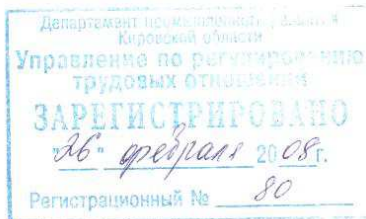 Департамент промышленного развития
Кировской области
Управление по регулированию
трудовых отношений
ЗАРЕГИСТРИРОВАНО
"26" февраля 2008 г.
Регистрационный № 80